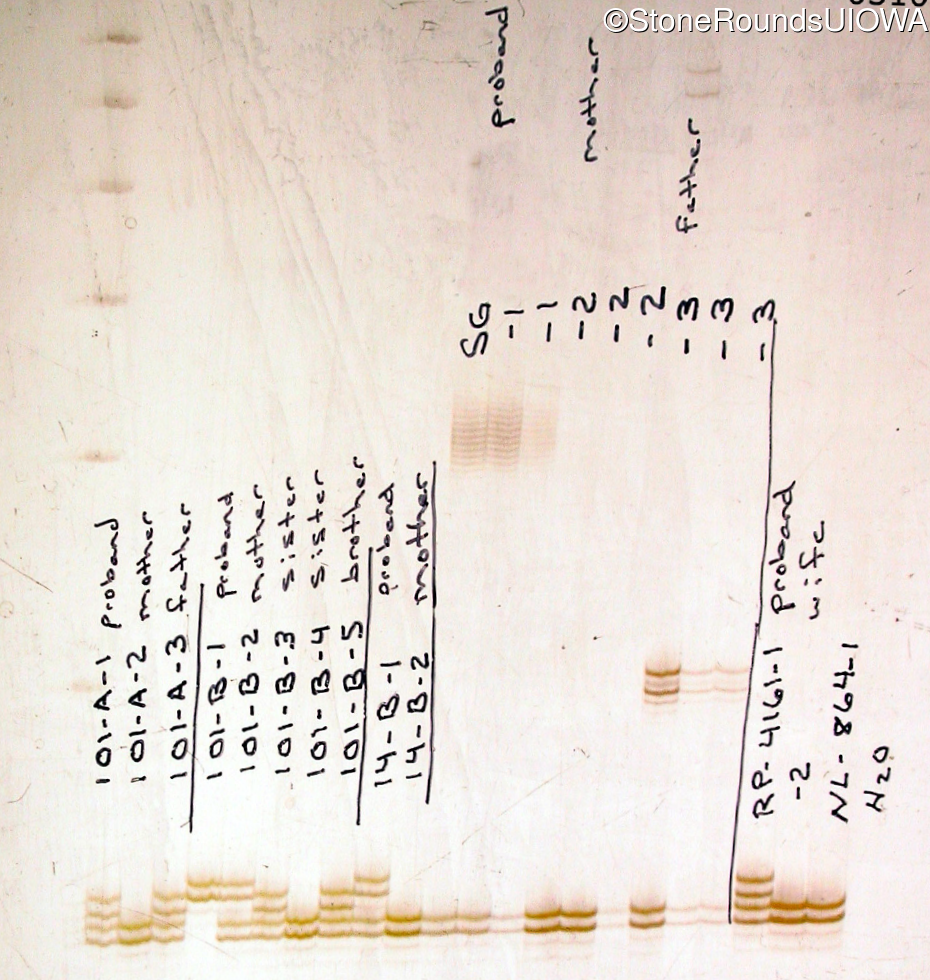 ©StoneRoundsUIOWA
101-A-1 proband
101-A-2 mother
101-A-3 father
101-B-1 proband
101-B-2 mother
101-B-3 sister
101-B-4 sister
101-B-5 brother
14-B-1 proband
14-B-2 mother
SG -1 proband
-1
-2 mother
-2
-2
-3 father
-3
-3
RP-4161-1 proband
-2 wife
NL-864-1
H2O